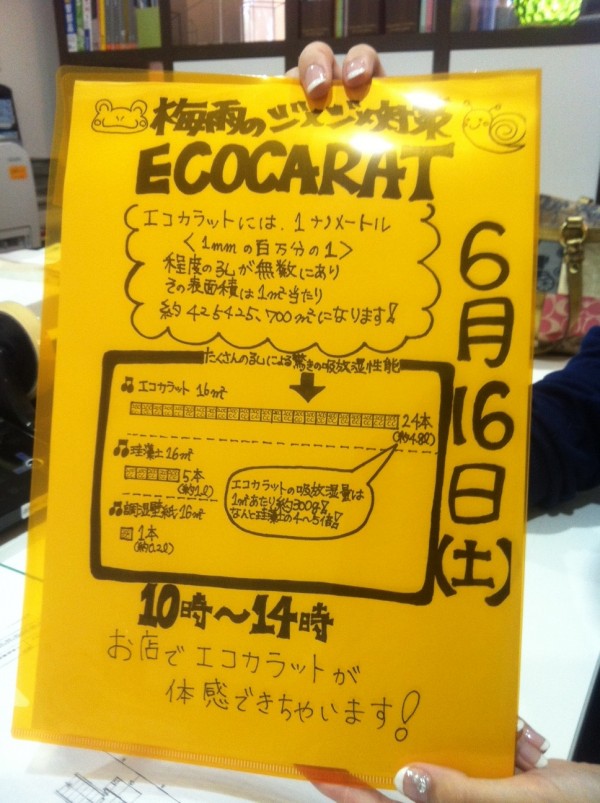 梅雨のジメジメ対策
ECOCARAT
エコカラットには、1ナノメートル
<1mmの百万分の1>
程度の孔が無数にあり
その表面積は1㎡当たり
約425425,700㎡になります!
6月16日(土)
たくさんの孔による驚きの吸放湿性能
エコカラット 16㎡
24本
(約4.8ℓ)
珪藻土 16㎡
5本
(約1ℓ)
エコカラットの吸放湿量は
1㎡あたり約300g!
なんと珪藻土の4〜5倍!
調湿壁紙 16㎡
1本
(約0.2ℓ)
10時〜14時
お店でエコカラットが
体感できちゃいます!